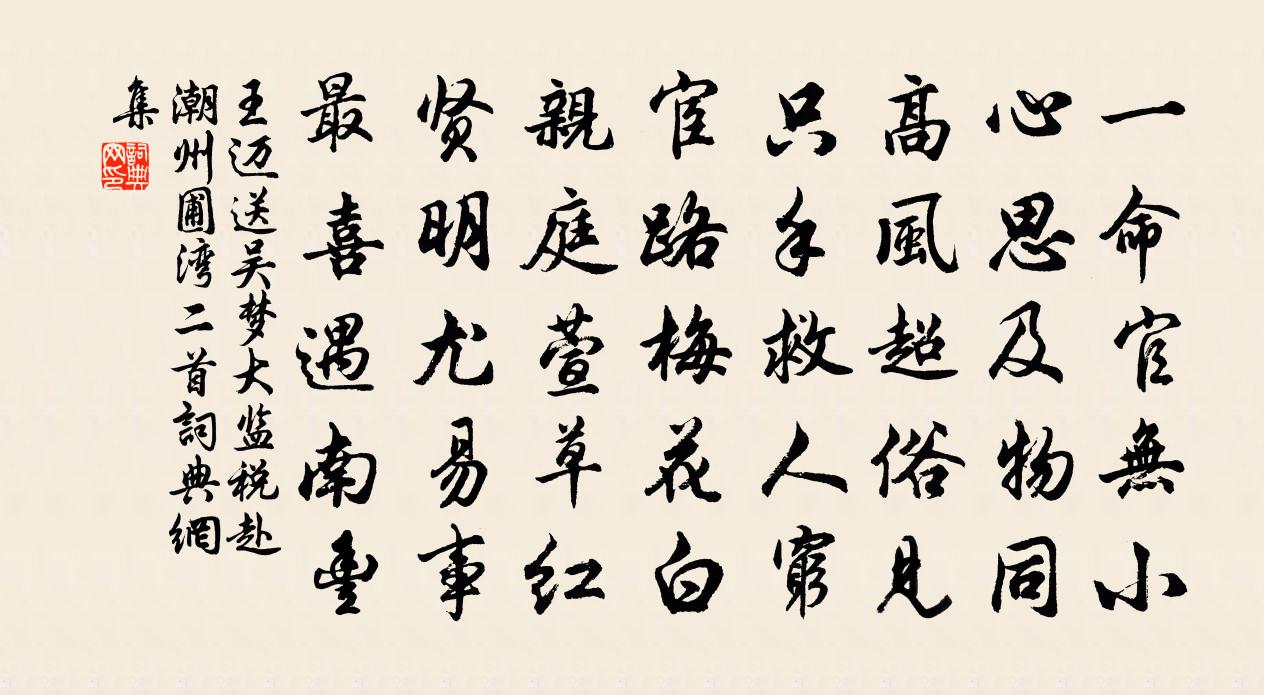 一命官無小
心思及物同
高風超俗見
只手救人窮
宦路梅花白
親庭萱草红
贤明尤易事
最喜遇南豐
王迈送吴梦大监税赴
潮州圃湾二首詞典網
集
詞典
网印